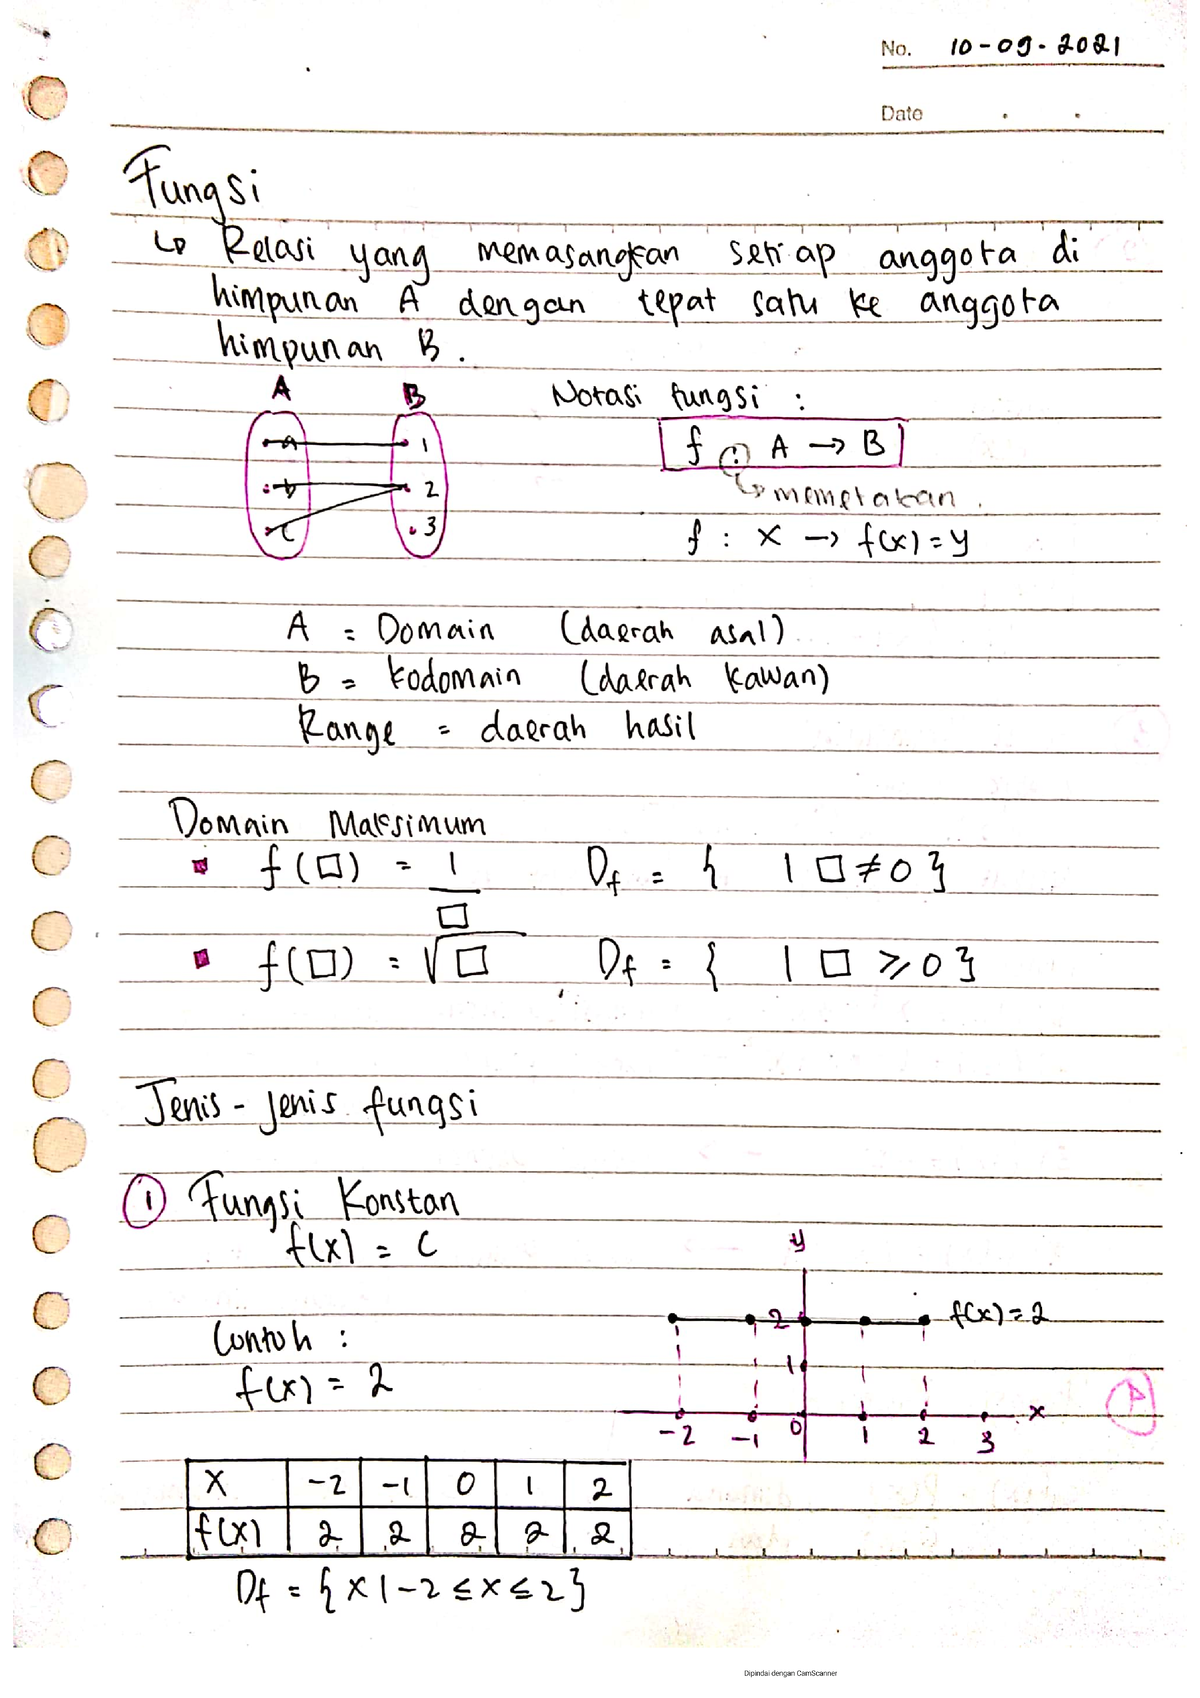 No. 10-09-2021
Date
Fungsi
↳ Relasi yang memasangkan setiap anggota di
himpunan A dengan tepat satu ke anggota
himpunan B.
A B
Notasi fungsi :
a 1
f : A → B
b 2
↳ memetakan.
c 3
f : x → f(x) = y
A = Domain (daerah asal)
B = Kodomain (daerah kawan)
Range = daerah hasil
Domain Maksimum
f(□) = 1/□ Df = { | □ ≠ 0 }
f(□) = √□ Df = { | □ ≥ 0 }
Jenis - jenis fungsi
① Fungsi Konstan
f(x) = c
y
2 f(x) = 2
Contoh :
1
f(x) = 2
x
-2 -1 0 1 2 3
x -2 -1 0 1 2
f(x) 2 2 2 2 2
Df = { x | -2 ≤ x ≤ 2 }
Dipindai dengan CamScanner